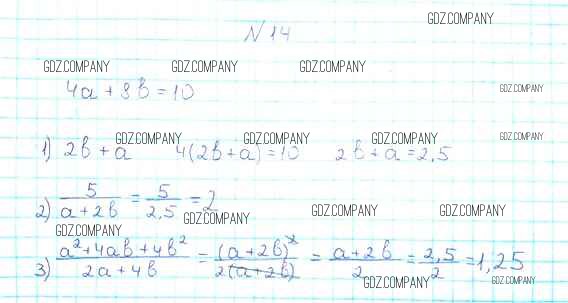 N 14
GDZ.COMPANY
GDZ.COMPANY GDZ.COMPANY GDZ.COMPANY
4a + 8b = 10
GDZ.COMPANY
GDZ.COMPANY GDZ.COMPANY GDZ.COMPANY GDZ.COMPANY
1) 2b + a 4(2b + a) = 10 2b + a = 2,5
2) 5/(a + 2b) = 5/2,5 = 2
GDZ.COMPANY GDZ.COMPANY GDZ.COMPANY
GDZ.COMPANY
3) (a² + 4ab + 4b²)/(2a + 4b) = (a + 2b)²/2(a + 2b) = (a + 2b)/2 = 2,5/2 = 1,25
GDZ.COMPANY GDZ.COMPANY